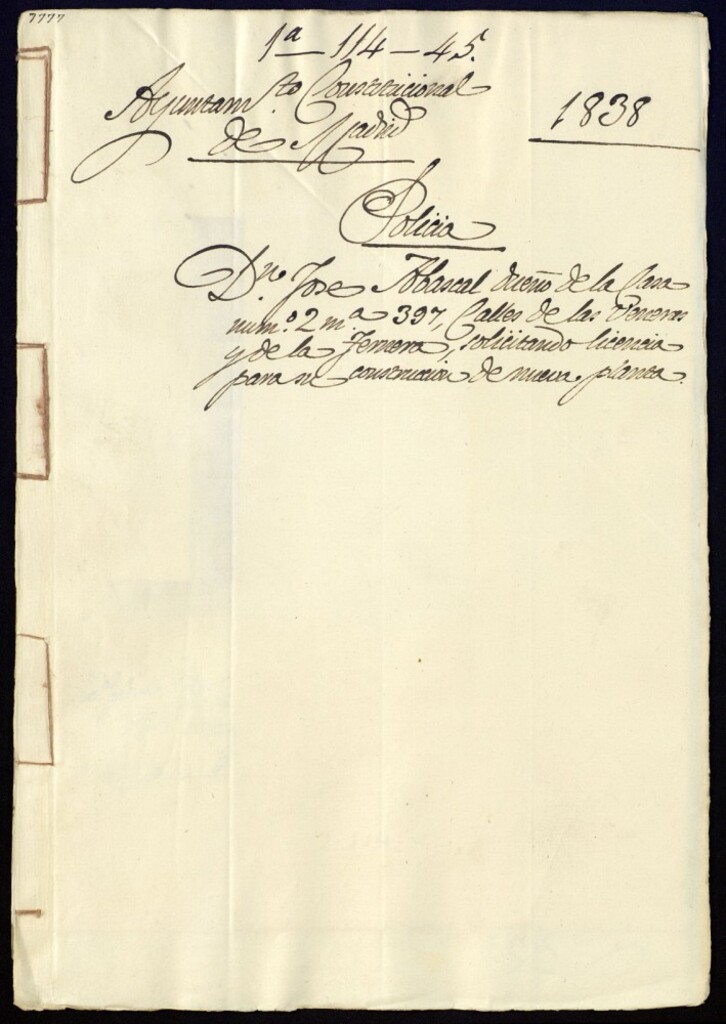 7777
1ª 114-45.
Ayuntam.to Constitucional
de Madrid
1838
Policia
Dn. Jose Abascal dueño de la Casa
num.º 2 m.ª 397, Calles de las Veneras
y de la Ternera, solicitando licencia
para su construccion de nueva planta.